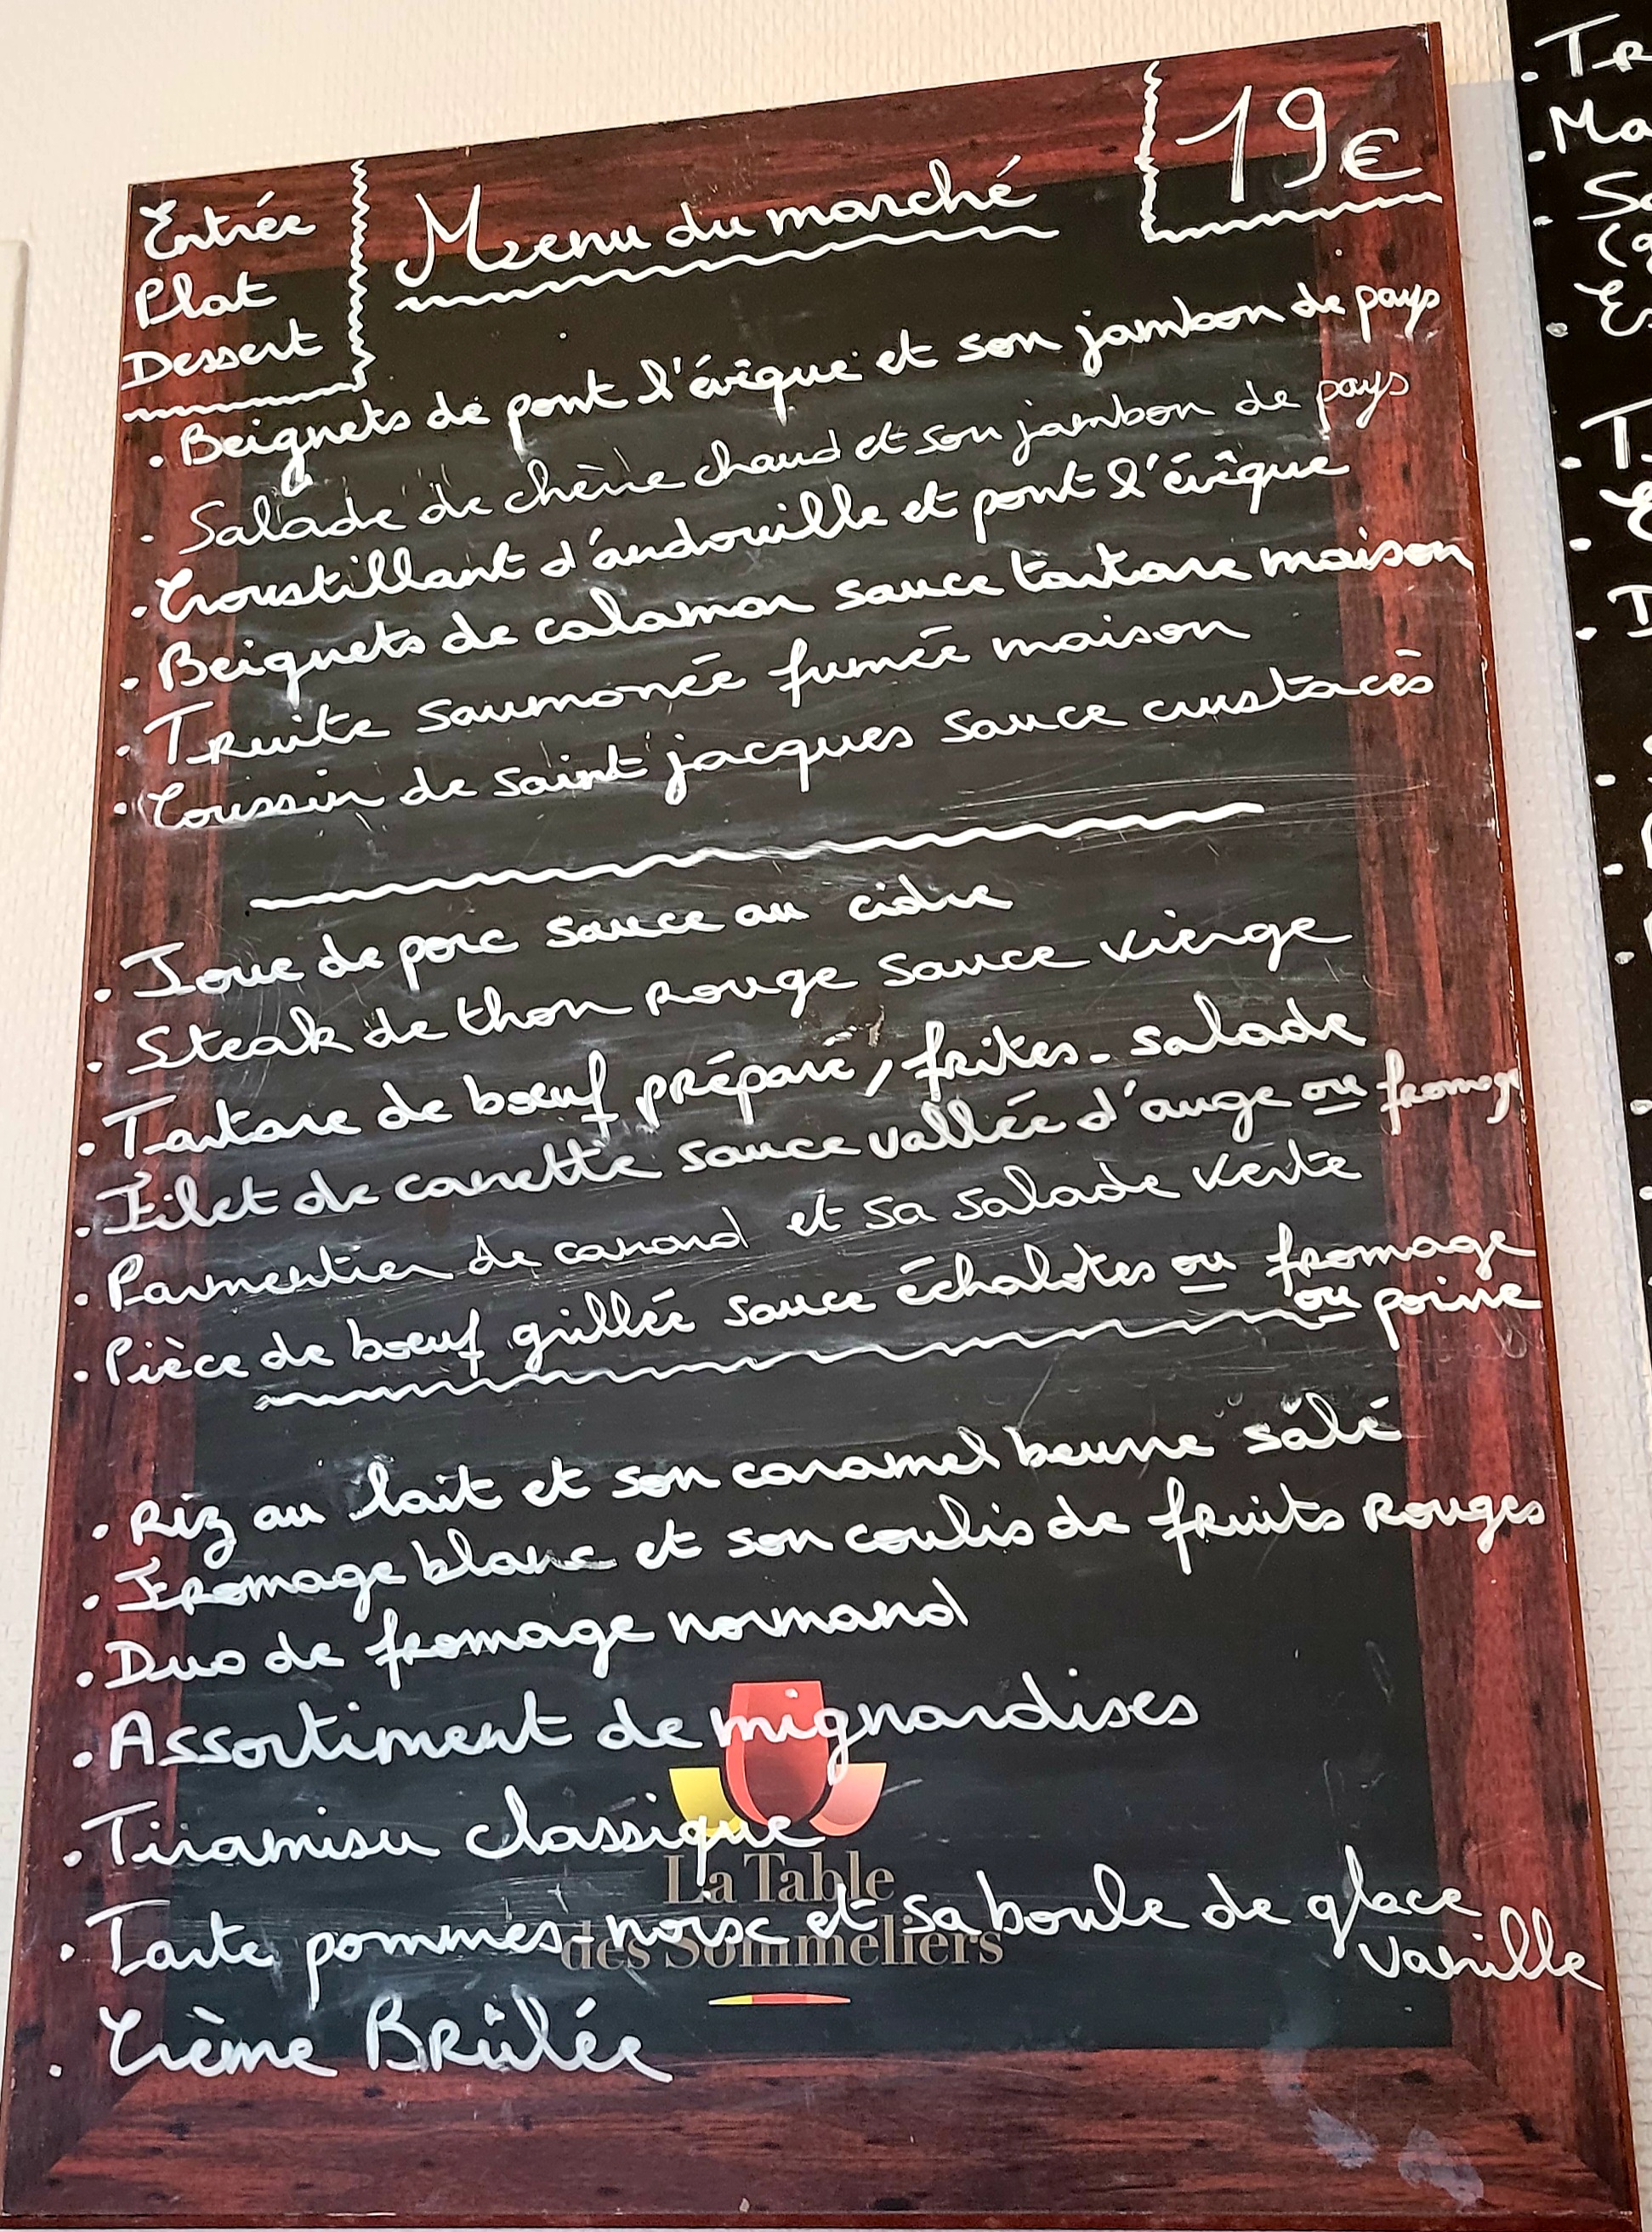 Entrée
Plat
Dessert
Menu du marché
19€
. Beignets de pont l'évêque et son jambon de pays
. Salade de chèvre chaud et son jambon de pays
. Croustillant d'andouille et pont l'évêque
. Beignets de calamar sauce tartare maison
. Truite saumonée fumée maison
. Coussin de saint jacques sauce crustacés
. Joue de porc sauce au cidre
. Steak de thon rouge sauce vierge
. Tartare de bœuf préparé, frites - salade
. Filet de canette sauce vallée d'auge ou fromage
. Parmentier de canard et sa salade verte
. Pièce de bœuf grillée sauce échalotes ou fromage
ou poivre
. Riz au lait et son caramel beurre salé
. Fromage blanc et son coulis de fruits rouges
. Duo de fromage normand
. Assortiment de mignardises
. Tiramisu classique
La Table
. Tarte pommes-noisc et sa boule de glace
vanille
des Sommeliers
. Crème Brûlée
. Tr
. Ma
. Sa